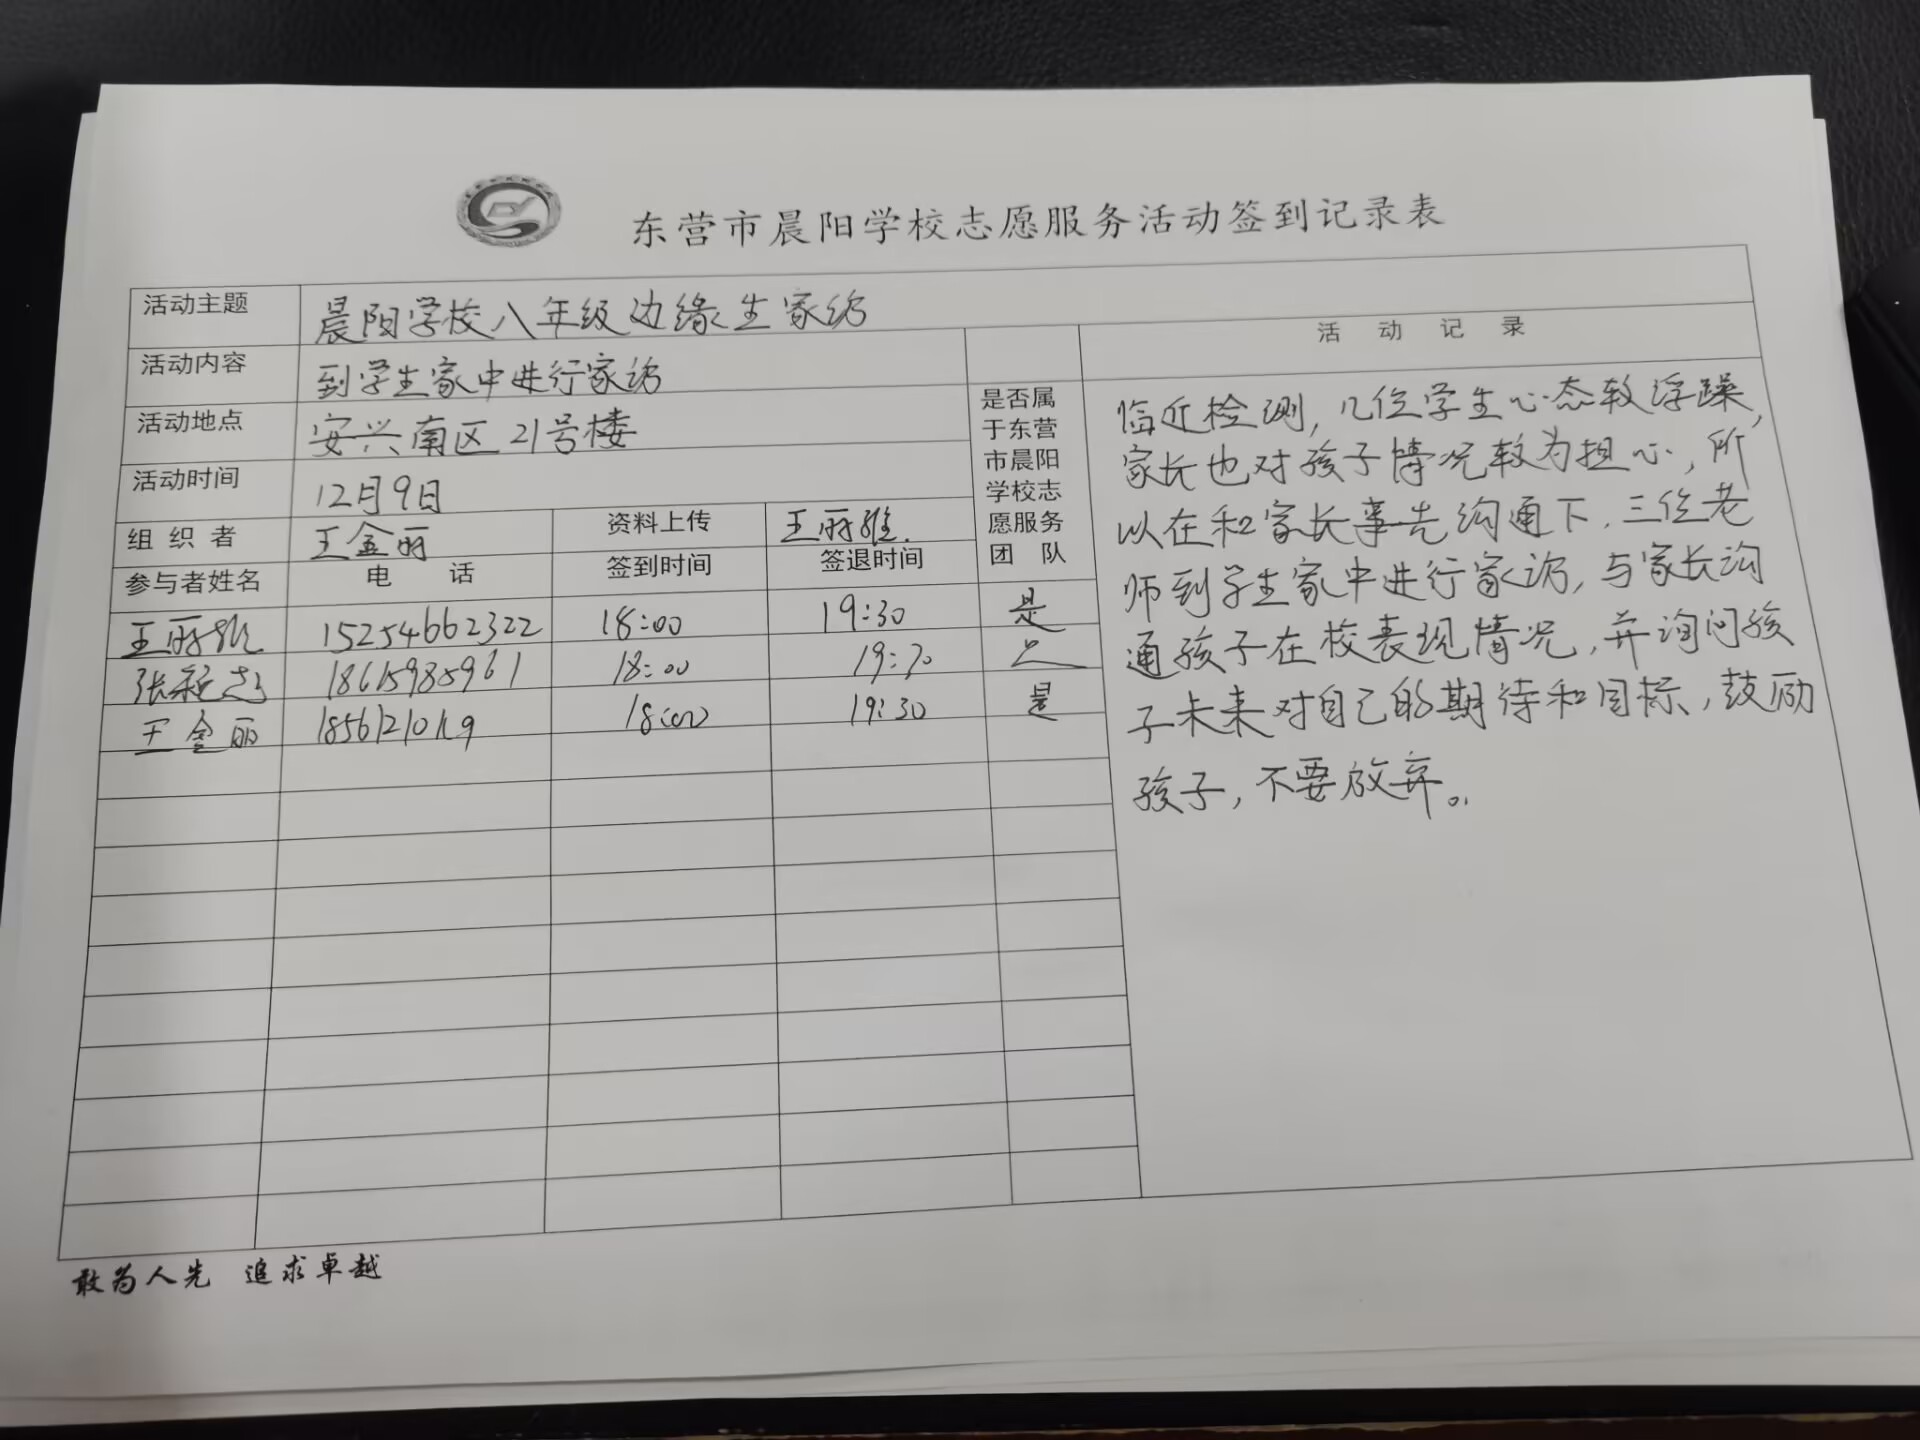 东营市晨阳学校志愿服务活动签到记录表
活动主题 晨阳学校八年级边缘生家访
活动内容 到学生家中进行家访
活动地点 安兴南区 21号楼
活动时间 12月9日
组织者 王金丽 资料上传 王丽雅
参与者姓名 电话 签到时间 签退时间
是否属
于东营
市晨阳
学校志
愿服务
团队
王丽雅 15254662322 18:00 19:30 是
18615985961 18:00 19:30
王金丽 18:00 19:30 是
活动记录
临近检测，几位学生心态较浮躁，
家长也对孩子情况较为担心，所
以在和家长事先沟通下，三位老
师到学生家中进行家访，与家长沟
通孩子在校表现情况，并询问孩
子未来对自己的期待和目标，鼓励
孩子，不要放弃。
敢为人先 追求卓越